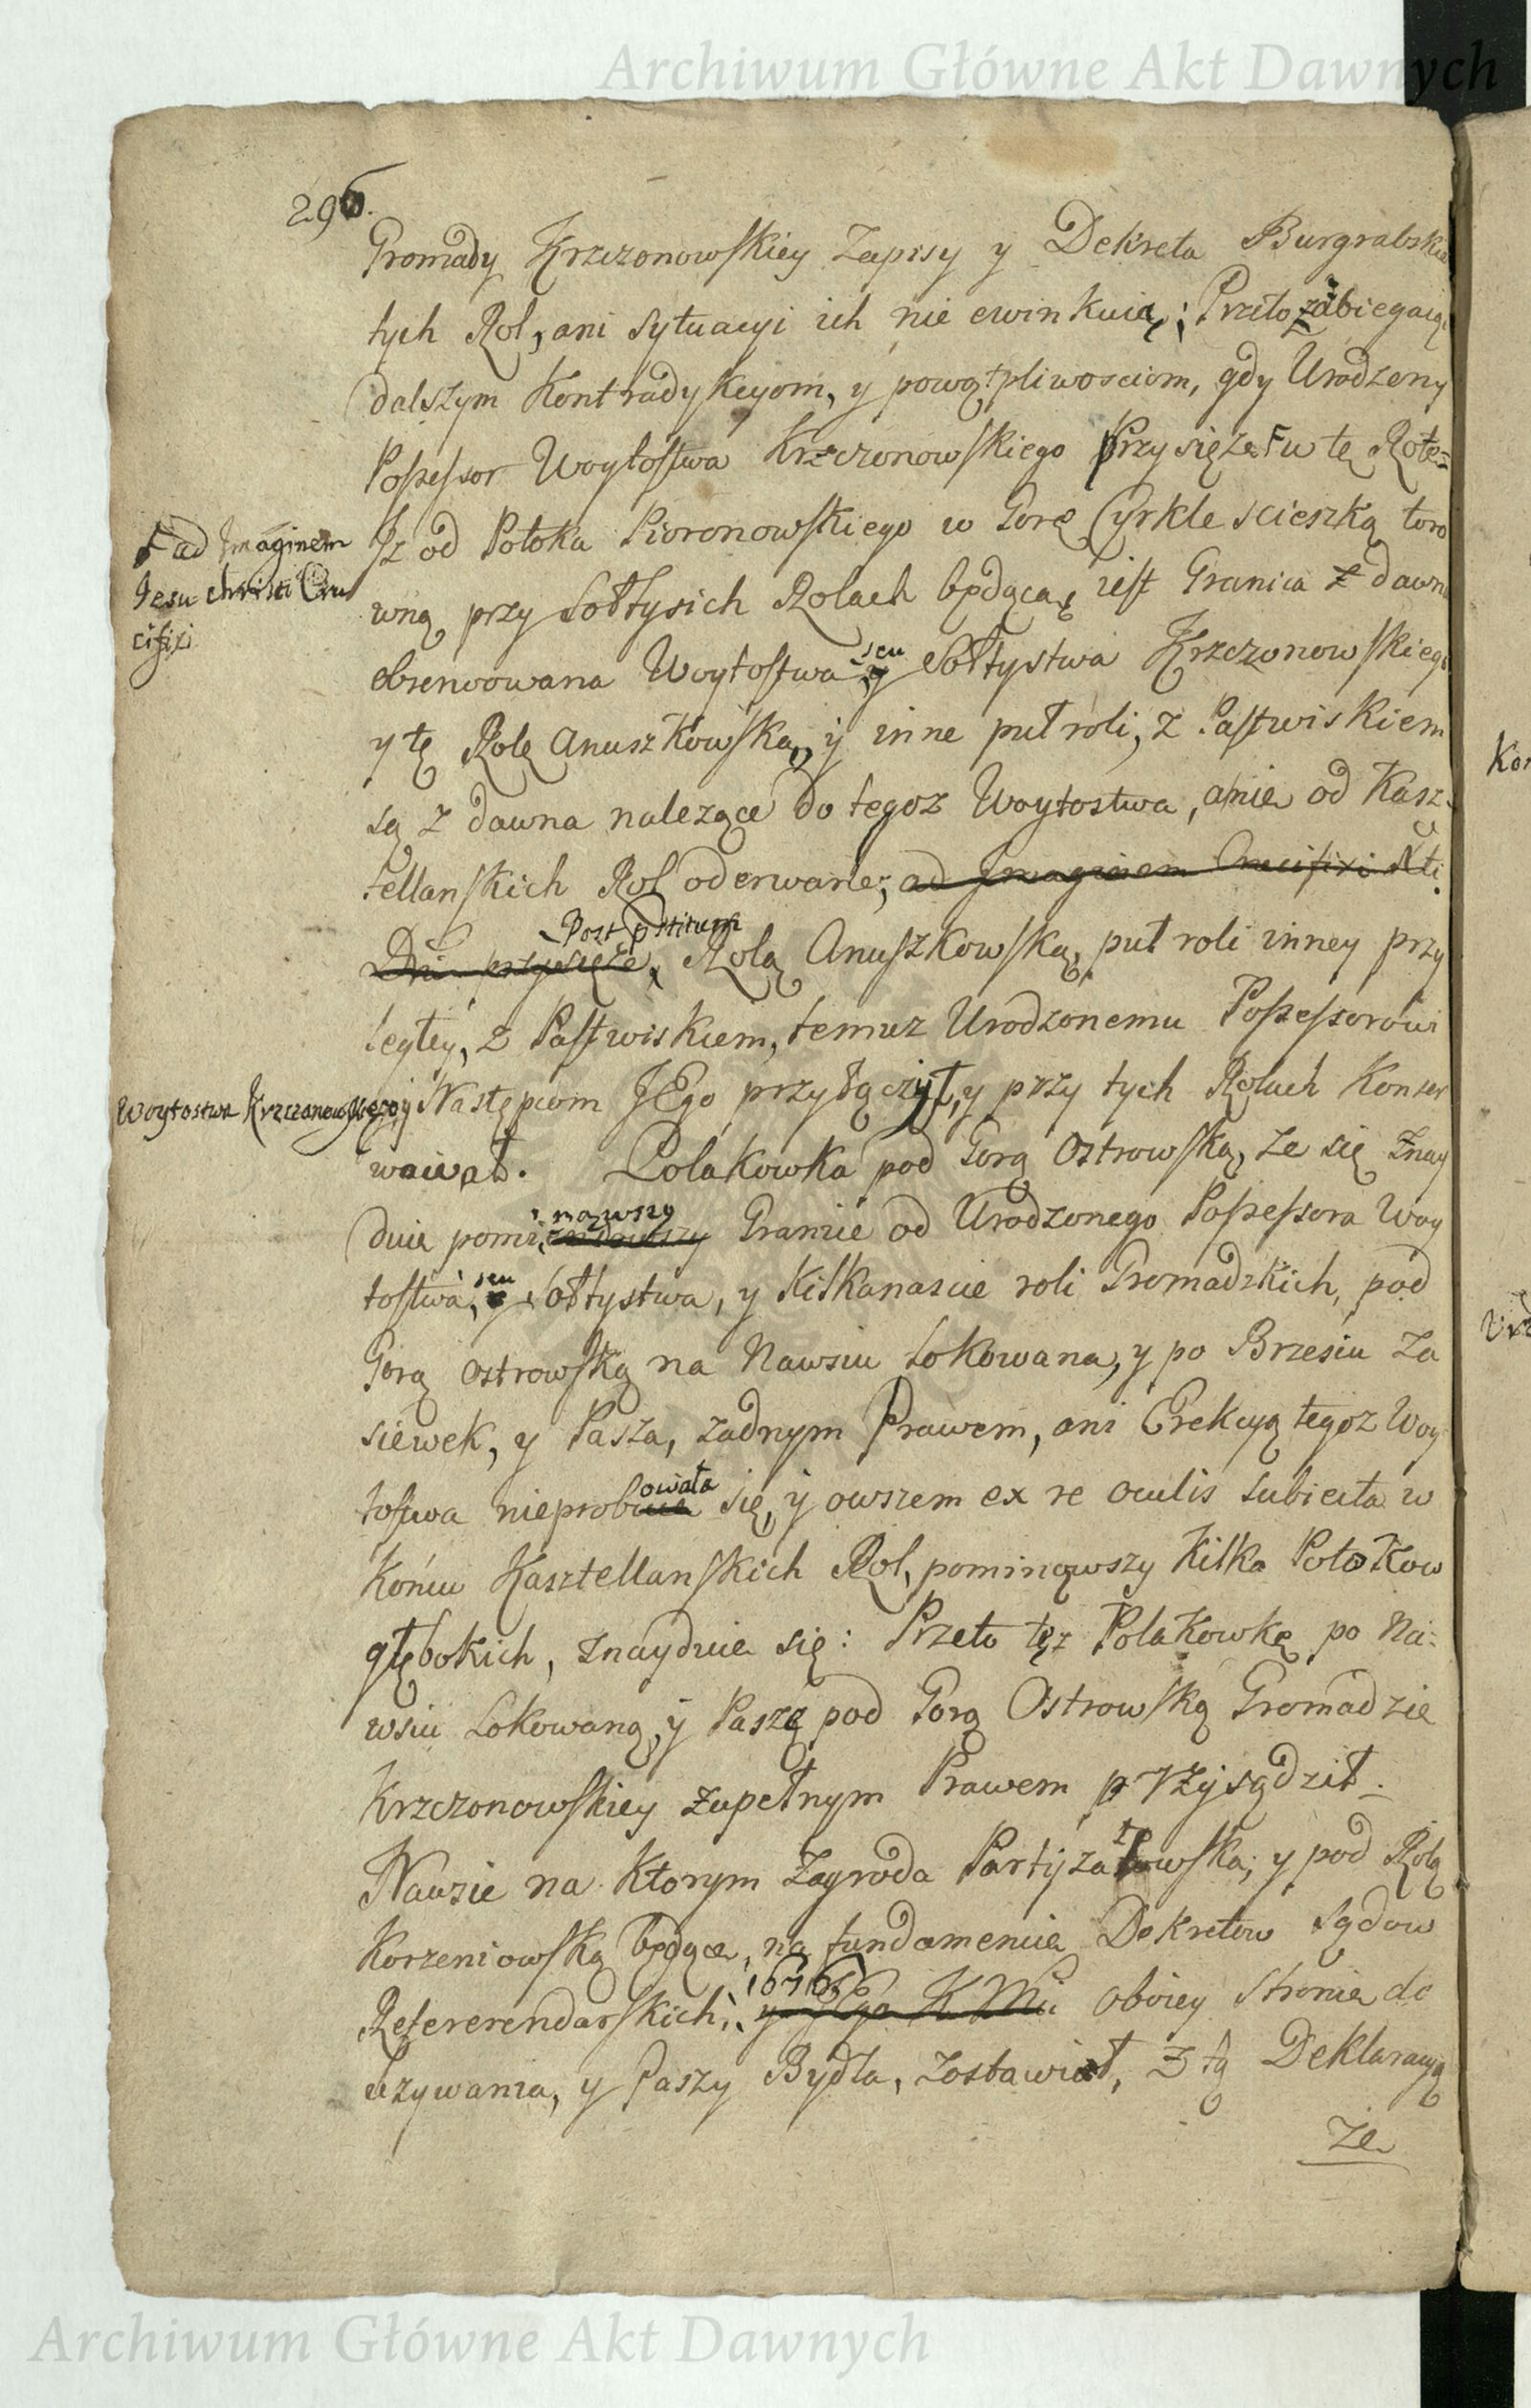 Archiwum Główne Akt Dawnych
296.
Gromady Krzczonowskiey Zapisy y Dekreta Burgrabskie
tych Rol, ani sytuacyi ich nie ewinkuią; Przeto zabiegaiąc
dalszym Kontradykcyom, y powątpliwosciom, gdy Urodzony
Possessor Woytostwa Krzczonowskiego Przysięże F w tę Rotę=
F ad Imaginem
Jesu Christi Cru
cifixi
Jz od Potoka Pioronowskiego w Gorę Cyrkle scieszką toro
wną przy Sołtysich Rolach będącą, iest Granica z dawna
obserwowana Woytostwa seu y Sołtystwa Krzczonowskiego
y tę Rolę Anuszkowską, y inne puł roli, z Pastwiskiem
są z dawna nalezące do tegoz Woytostwa, a nie od Kasz-
tellanskich Rol oderwane; ad Imaginem Crucifixi Xti
Dni przysięże, Post pstitum Rolą Anuszkowską, puł roli inney przy
ległey, z Pastwiskiem, temuz Urodzonemu Possessorowi
Woytostwa Krzczonowskiego
y Następcom JEgo przyłączył, y przy tych Rolach Konser
wował. Polakowka pod Gorą Ostrowską, ze się Znay
duie pominąwszy Granie od Urodzonego Possessora Woy
tostwa, seu y Sołtystwa, y Kilkanascie roli Gromadzkich, pod
Gorą Ostrowską na Nawsiu Lokowana, y po Brzesiu Za
siewek, y Pasza, zadnym Prawem, ani Erekcyą tegoz Woy
tostwa nieprobowała się, y owszem ex re oculis subiecta w
Końcu Kasztellanskich Rol, pominąwszy Kilka Potokow
głębokich, znayduie się: Przeto tęz Polakowkę po Na=
wsiu Lokowaną, y Paszę pod Gorą Ostrowską Gromadzie
Krzczonowskiey zupełnym Prawem przysądził.
Nawsie na Ktorym Zagroda Partyzałowska, y pod Rolą
Korzeniowską będące, na fundamencie Dekretow Sądow
Refererendarskich, 1676 y JEgo K Mci oboiey Stronie do
Uzywania, y Paszy Bydła, zostawiał, z tą Deklaracyą
ze
Kon
Archiwum Główne Akt Dawnych